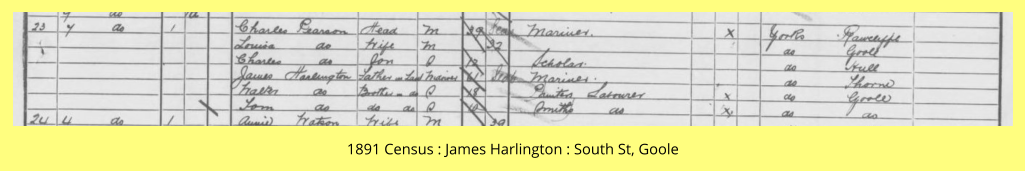 23 7 do 1 Charles Pearson Head M 39 Mariner. X Yorks Rawcliffe
Louisa do Wife M 32 do Goole
Charles do Son S 12 Scholar do Hull
James Harlington Father in Law Married 61 Mariner. do Thorne
Walter do Brother do S 18 Painters Labourer X do Goole
Tom do do do S Smiths do X do do
24 4 do 1 Annie Watson Wife M 39
1891 Census : James Harlington : South St, Goole